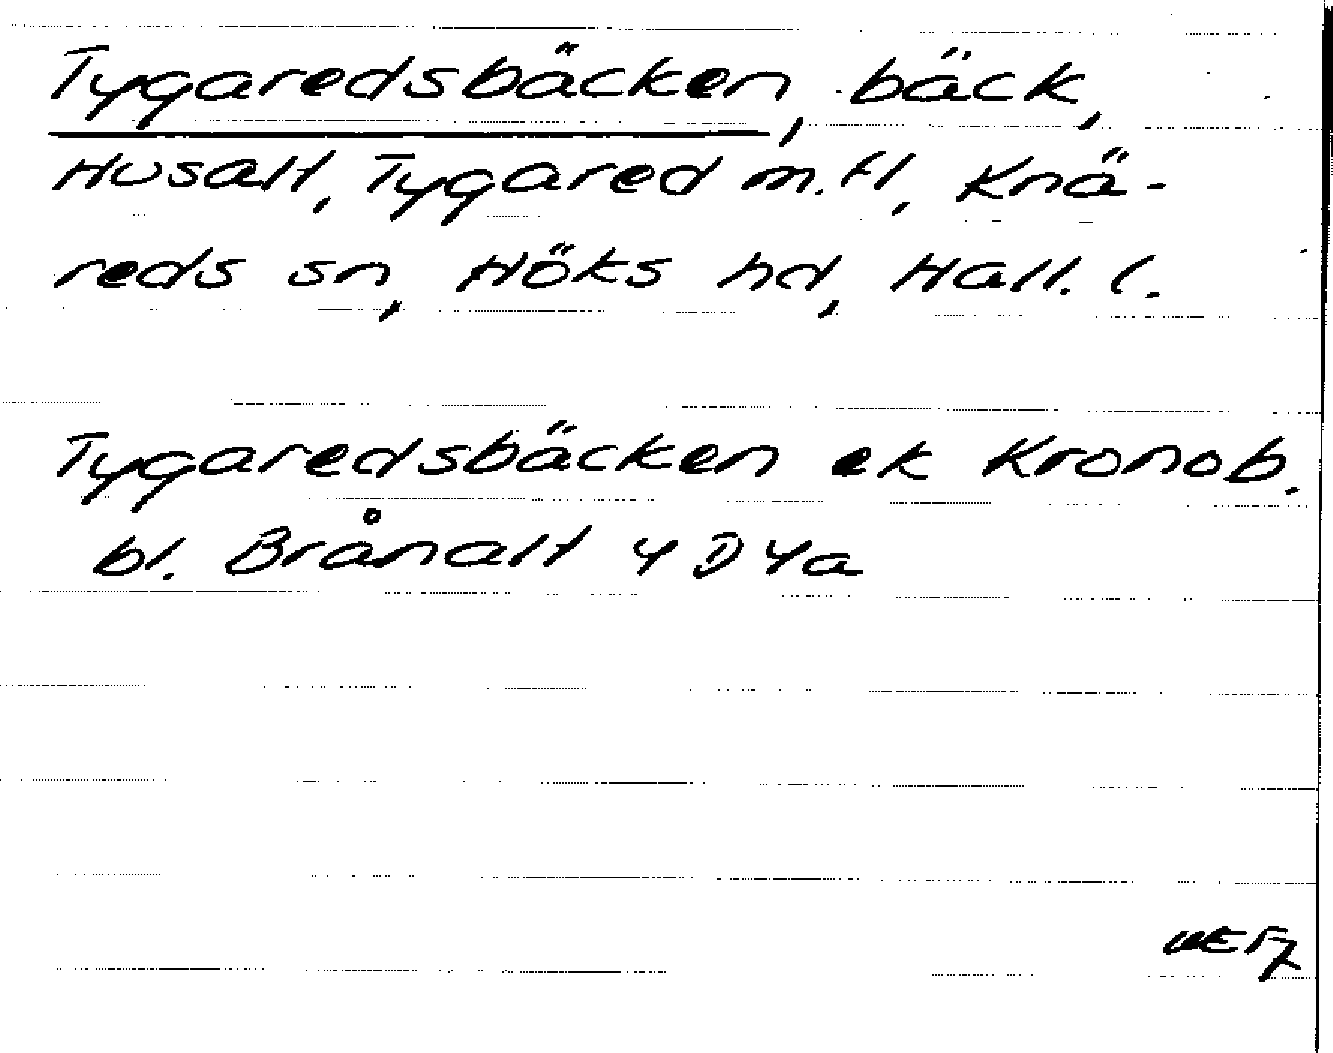 Tygaredsbäcken, bäck,
Husalt, Tygared m.fl, Knä-
reds sn, Höks hd, Hall. l.
Tygaredsbäcken ek Kronob.
bl. Brånalt 4 D 4a